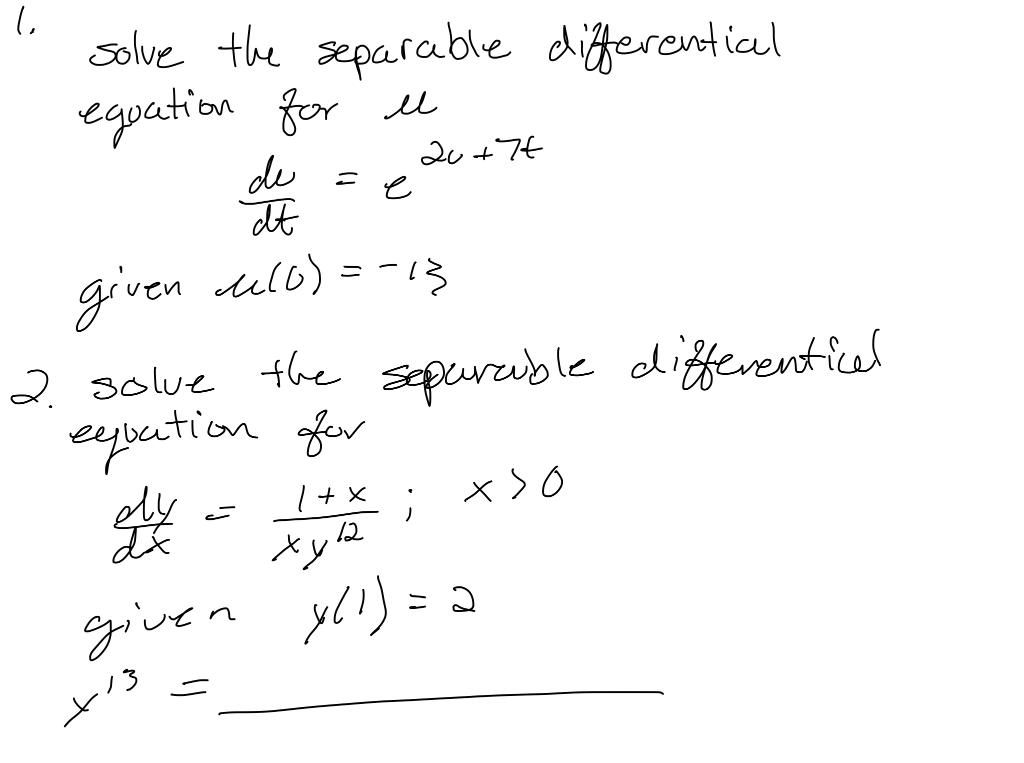 1.
solve the separable differential
equation for u
du/dt = e^(2u+7t)
given u(0) = -13
2. solve the separable differential
equation for
dy/dx = (1+x)/(xy^12) ; x > 0
given y(1) = 2
y^13 = ________